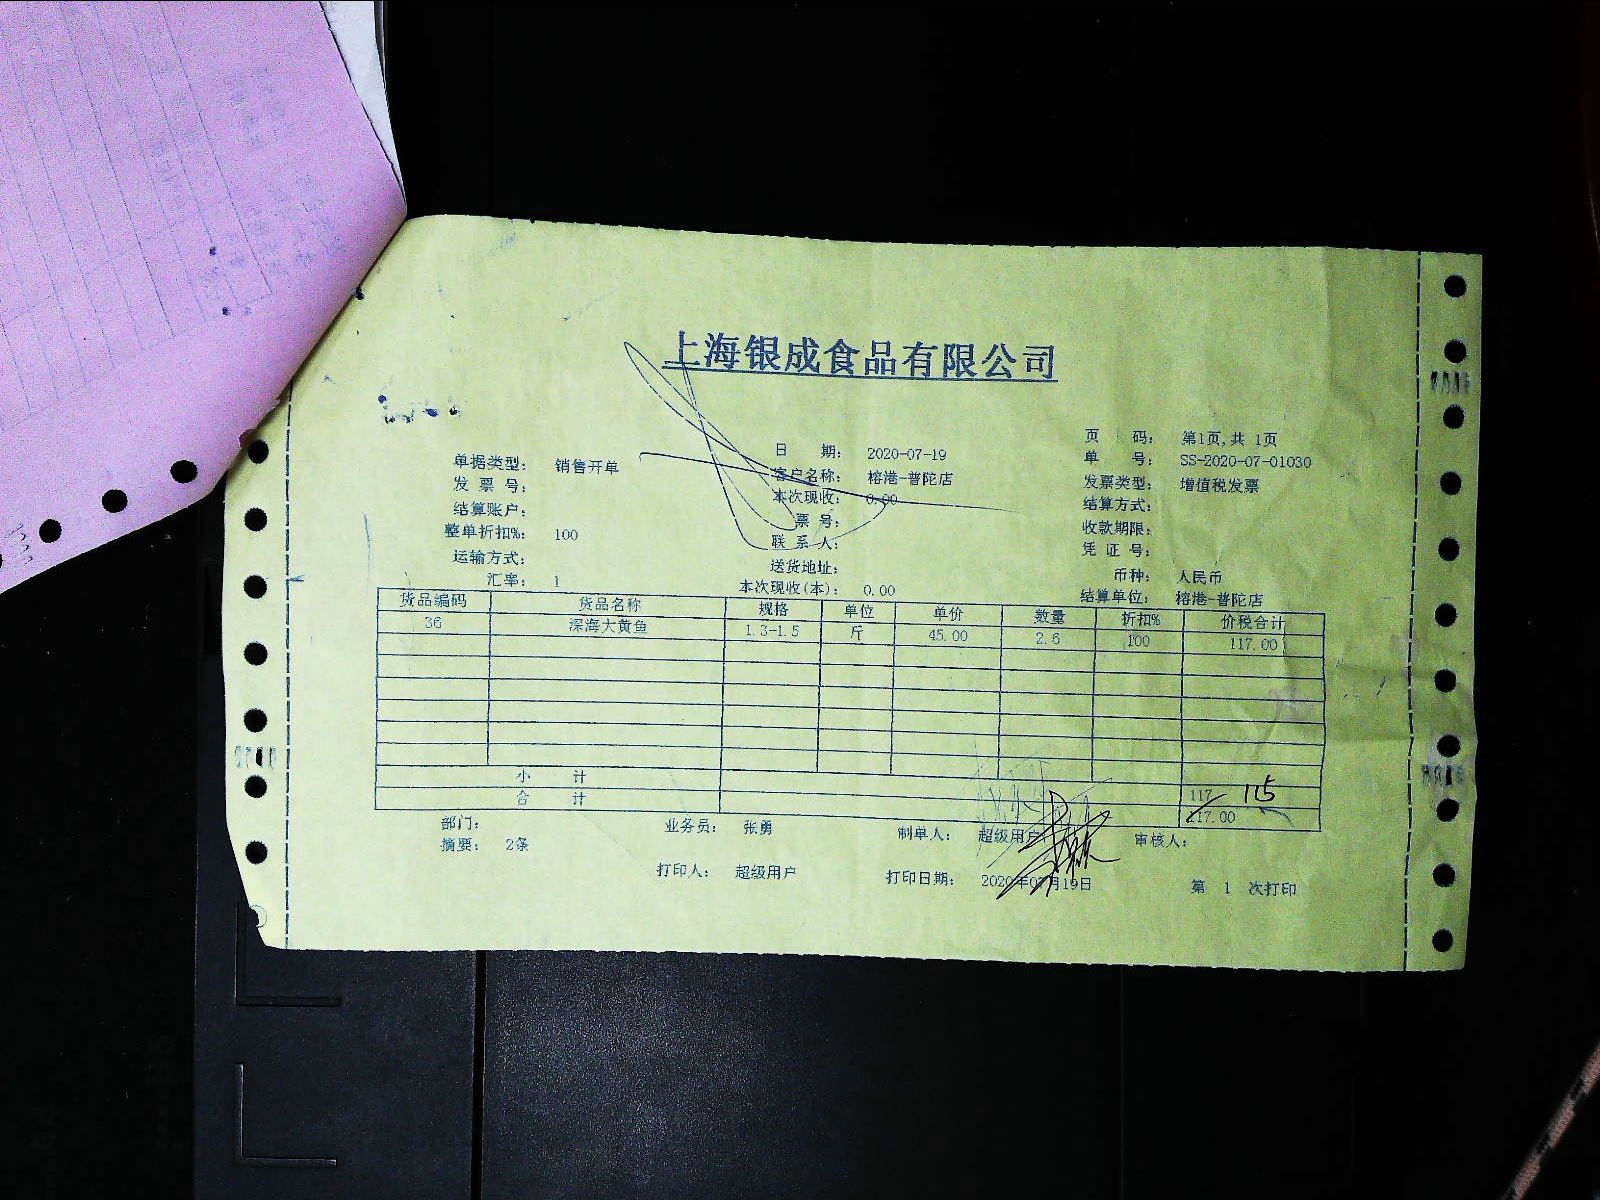 上海银成食品有限公司
单据类型： 销售开单 日 期： 2020-07-19 页 码： 第1页,共 1页
发 票 号： 客户名称： 榕港-普陀店 单 号： SS-2020-07-01030
结算账户： 本次现收： 0.00 发票类型： 增值税发票
整单折扣%： 100 票 号： 结算方式：
运输方式： 联 系 人： 收款期限：
汇率： 1 送货地址： 凭 证 号：
本次现收(本)： 0.00 币种： 人民币
结算单位： 榕港-普陀店
货品编码 货品名称 规格 单位 单价 数量 折扣% 价税合计
36 深海大黄鱼 1.3-1.5 斤 45.00 2.6 100 117.00
小 计 117 115
合 计 117.00
部门： 业务员： 张勇 制单人： 超级用户 审核人：
摘要： 2条
打印人： 超级用户 打印日期： 2020年07月19日 第 1 次打印